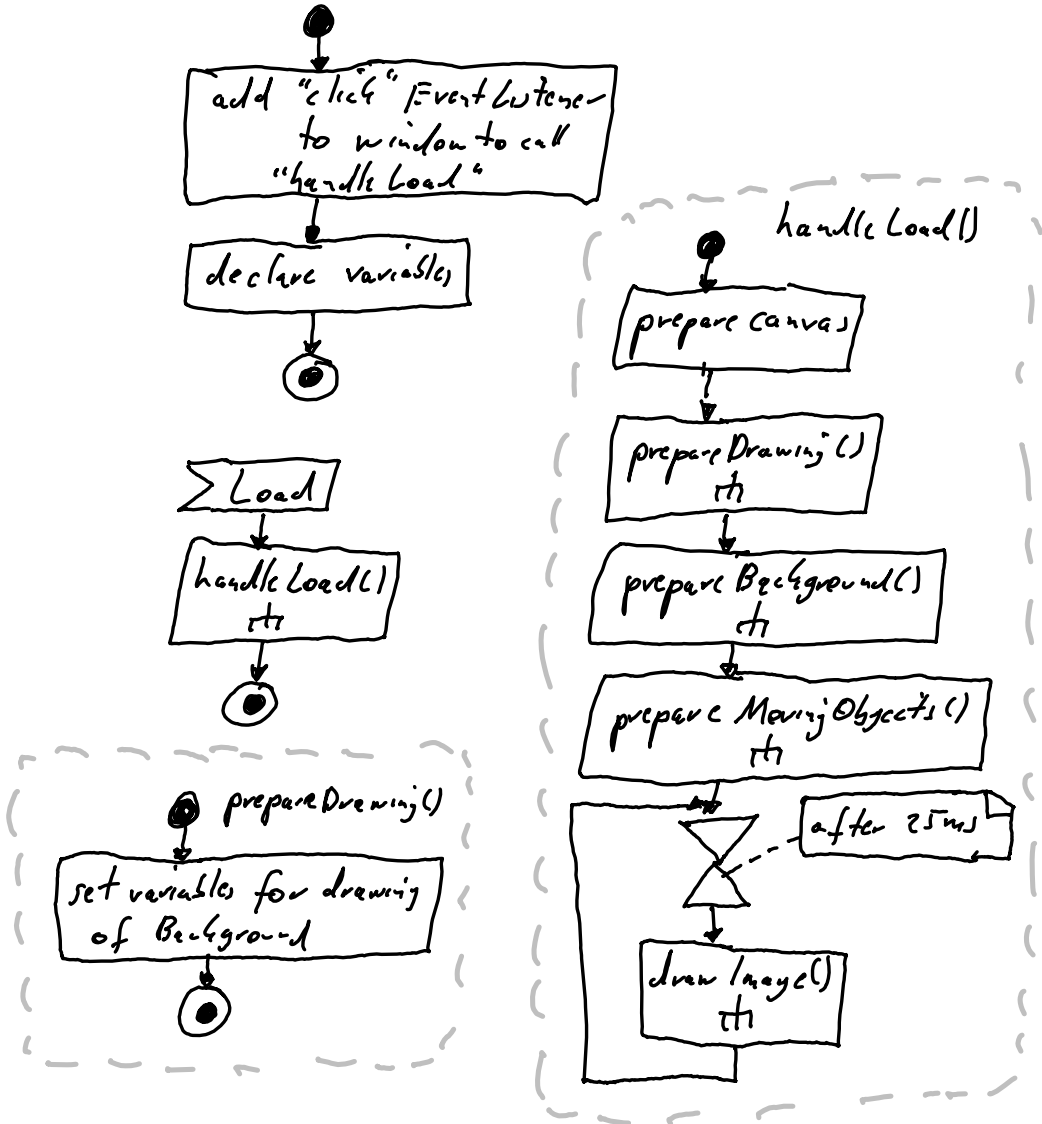 add "click" EventListener
to window to call
"handleLoad"
declare variables
Load
handleLoad()
prepareDrawing()
set variables for drawing
of Background
handleLoad()
prepare canvas
prepareDrawing()
prepareBackground()
prepare MovingObjects()
after 25ms
drawImage()